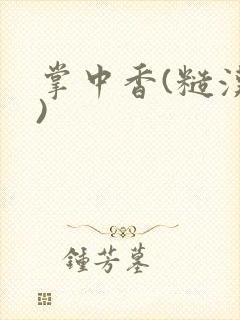 掌中香(糙汉
)
鍾芳墓